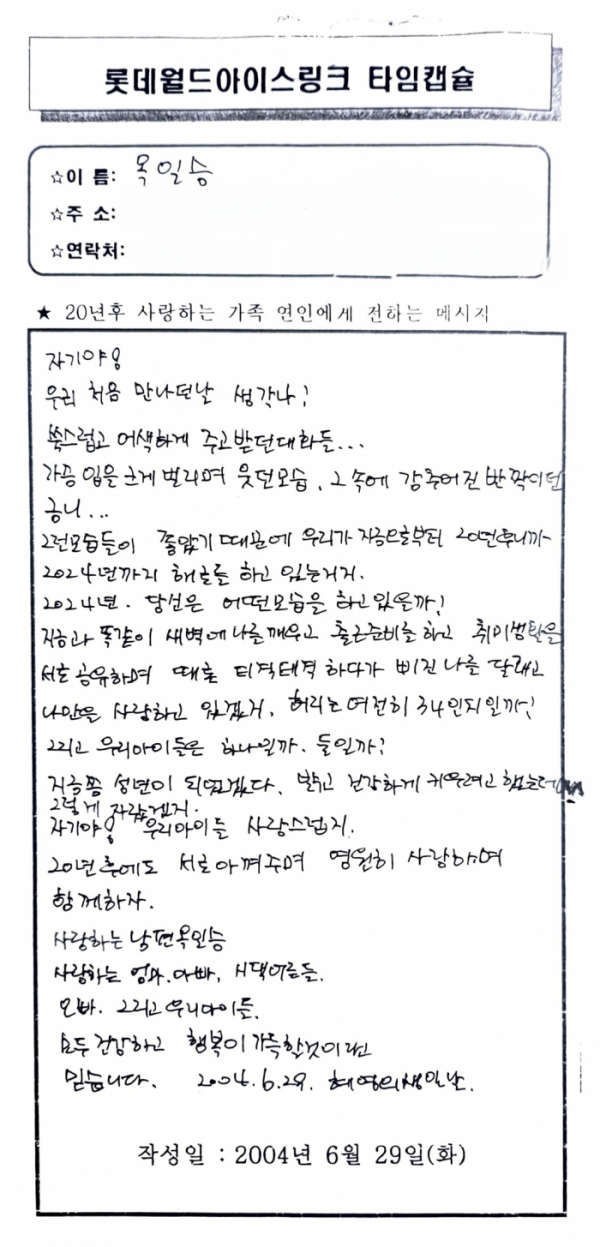 롯데월드아이스링크 타임캡슐
☆이 름: 옥일승
☆주 소:
☆연락처:
★ 20년후 사랑하는 가족 연인에게 전하는 메시지
자기야용
우리 처음 만나던날 생각나?
쑥스럽고 어색하게 주고받던대화들...
가끔 입을 크게 벌리며 웃던모습, 그 속에 감추어진 반짝이던
금니...
그런모습들이 좋았기 때문에 우리가 지금으로부터 20년후니까
2024년까지 해로를 하고 있는거지.
2024년. 당신은 어떤모습을 하고있을까?
지금과 똑같이 새벽에 나를 깨우고 출근준비를 하고 취미생활을
서로 공유하며 때로 티격태격 하다가 삐진 나를 달래고
나만을 사랑하고 있겠지, 허리는 여전히 34인치 일까?
그리고 우리아이들은 하나일까, 둘일까?
지금쯤 성년이 되었겠다, 밝고 건강하게 키우려고 했는데
그렇게 자랐겠지.
자기야용 우리아이들 사랑스럽지.
20년후에도 서로 아껴주며 영원히 사랑하며
함께하자.
사랑하는 남편옥일승
사랑하는 엄마.아빠, 시댁어른들,
오빠. 그리고 우리아이들,
모두 건강하고 행복이 가득할것이라고
믿습니다. 2004.6.29. 혜영의생일날.
작성일 : 2004년 6월 29일(화)